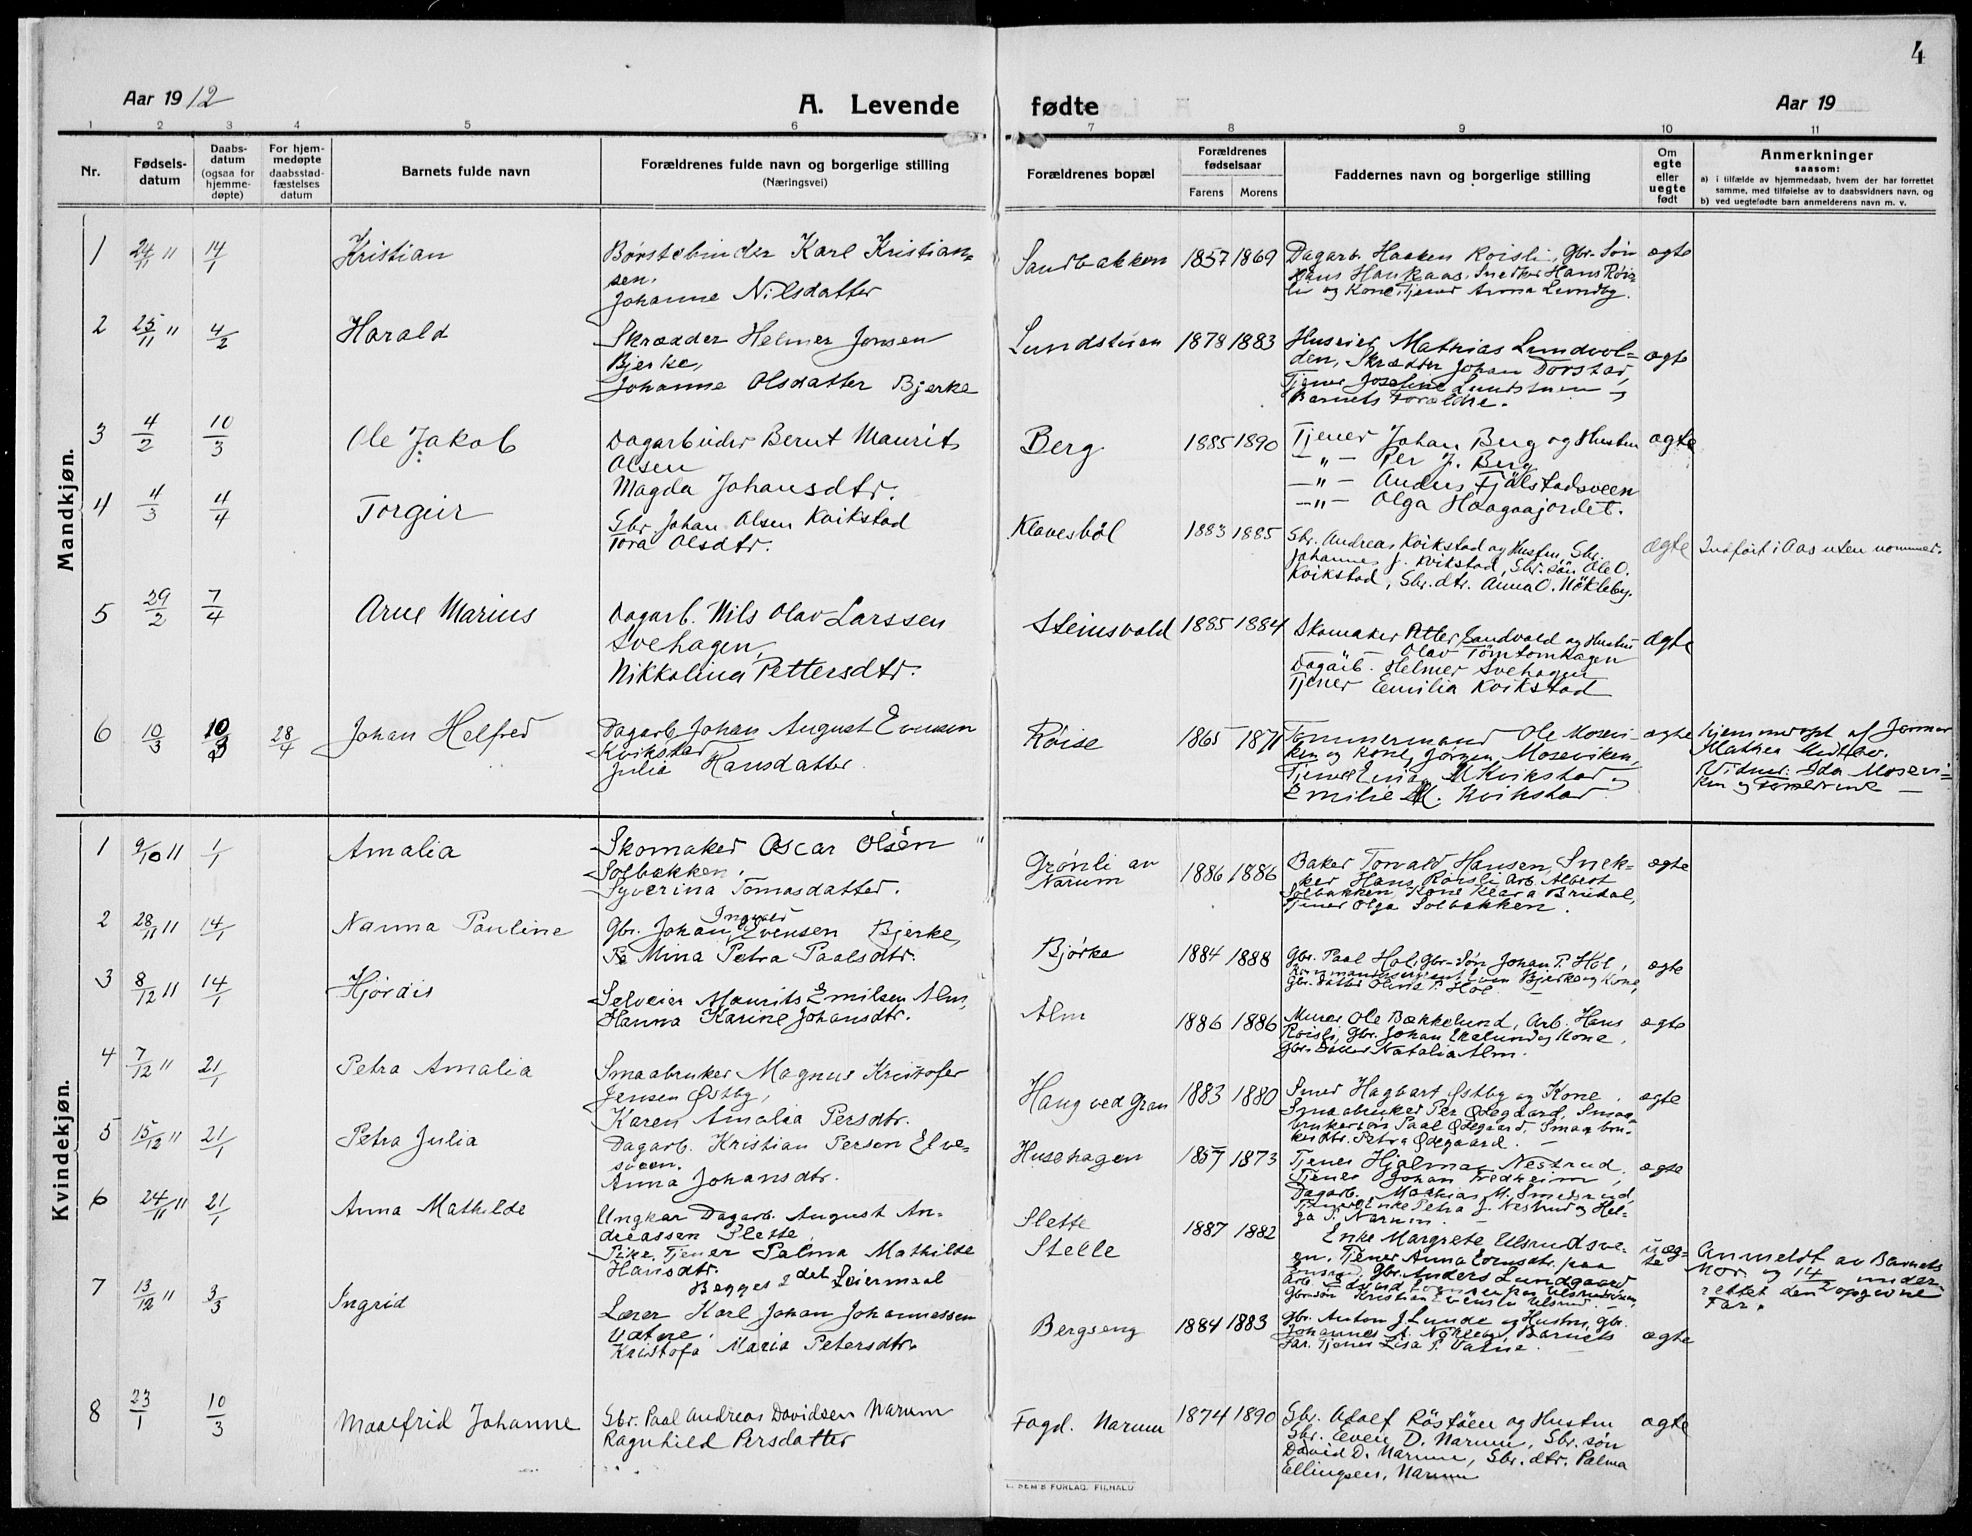 4
Aar 1912
A. Levende fødte
Aar 19
1 2 3 4 5 6 7 8 9 10 11
Nr.
Fødsels-
datum
Daabs-
datum
(ogsaa for
hjemme-
døpte)
For hjem-
medøpte
daabsstad-
fæstelses
datum
Barnets fulde navn
Forældrenes fulde navn og borgerlige stilling
(Næringsvei)
Forældrenes bopæl
Forældrenes
fødselsaar
Farens Morens
Faddernes navn og borgerlige stilling
Om
egte
eller
uegte
født
Anmerkninger
saasom:
a) i tilfælde av hjemmedaab, hvem der har forrettet
samme, med tilføielse av to daabsvidners navn, og
b) ved uegtefødte barn anmelderens navn m. v.
Mandkjøn.
1 24/11 " 14/1 Kristian
Børstebinder Karl Kristian=
sen,
Johanne Nilsdatter
Sandbakken 1857 1869
Dagarb. Haaken Roisli, Gbr. Søn
Hans Hankaas, Snedker Hans Røis-
li og Kone, Tjener Anna Lundby.
egte
2 25/11 " 4/2 Harald
Skrædder Helmer Jensen
Bjerke,
Johanne Olsdatter Bjerke
Lundstuen 1878 1883
Huseier Mathias Lundvol=
den, Skrædder Johan Dorstad,
Tjener Josefine Lundstuen og
Barnets Forældre.
egte
3 4/2 10/3 Ole Jakob
Dagarbeider Bernt Maurits
Olsen
Magda Johansdtr.
Berg 1885 1890
Tjener Johan Berg og Hustru
— " — Per J. Berg
— " — Anders Fjälstadsveen
— " — Olga Haagaajordet.
egte
4 4/3 4/4 Torgeir
Gbr. Johan Olsen Kvikstad
Tora Olsdtr.
Klavesböl 1883 1885
Gbr. Andreas Kvikstad og Hustru, Gbr.
Johannes J. Kvikstad, Gbr. sön Ole O.
Kvikstad, Gbr. dtr. Anna O. Nökleby.
egte
Indført i Aas uten nommer.
5 29/2 7/4 Arne Marius
Dagarb. Nils Olav Larssen
Svehagen,
Nikkoline Pettersdtr.
Steinsvold 1885 1884
Skomaker Petter Sandvold og Hustru
Olav Tømtomhagen
Dagarb. Helmer Svehagen
Tjener Emilia Kvikstad
egte
6 10/3 10/3 28/4 Johan Helfred
Dagarb. Johan August Evensen
Kvikstad
Julia Hansdatter.
Røise 1865 1871
Tømmermand Ole Mosevi-
ken og Kone, Jørgen Moseviken,
Tjener Enia M Kvikstad og
Emilie M. Kvikstad.
egte
hjemmedøpt af Jormor
Mathea
Vidner: Ida Mosevi=
ken og Forældrene —
Kvindekjøn.
1 9/10 " 1/1 Amalia
Skomaker Oscar Olsen
Solbakken,
Syverina Tomasdatter.
Grønli av
Narum 1886 1886
Baker Torvald Hansen, Snek-
ker Hans Roisli, Arb. Albert
Solbakken, Kone Klara Brudal,
Tjener Olga Solbakken.
egte
2 28/11 " 14/1 Nanna Pauline
Ingvald
Gbr. Johan Evensen Bjerke,
Mina Petra Paalsdtr.
Bjørke 1884 1888
Gbr. Paal Hol, Gbr-søn Johan P. Hol,
Kommandersergeant Even Bjerke og Kone,
Gbr. datter P. Hol —
egte
3 8/12 " 14/1 Hjørdis
Selveier Maurits Emilsen Alm,
Hanna Karine Johansdtr.
Alm 1886 1886
Murer Ole Bækkelund, Arb. Hans
Roisli, Gbr. Johan Ekelund og Kone,
Gbr. Datter Natalia Alm.
egte
4 7/12 " 21/1 Petra Amalia
Smaabruker Magnus Kristofer
Jensen Østby,
Karen Amalia Persdtr.
Haug ved Gran 1883 1880
Smed Hagbart Østby og Kone,
Smaabruker Per Ødegaard, Smaa
brukersøn Paal Ødegaard, Smaabru-
kerdtr. Petra Ødegaard. —
egte
5 15/12 " 21/1 Petra Julia
Dagarb. Kristian Persen Elve-
sveen.
Anna Johansdtr.
Husehagen 1857 1873
Tjener Hjalmar Nestrud,
Tjener Johan Fredheim,
Dagarb. Mathias M. Smedsrud,
Enke Petra J. Nestrud og Hel-
ga P. Narum. —
egte
6 24/11 " 21/1 Anna Mathilde
Ungkar Dagarb. August An-
dreassen Slette,
Pike, Tjener Palma Mathilde
Hansdtr.
Begges 2det Leiermaal
Slette
Stelle 1887 1882
Enke Margrete Ulsrudsve-
en, Tjener Anna Evensdtr. paa
Gbr. Anders Lundgaard
Arb. Edvard
Gbr-søn Kristian Evensen Ulsrud. —
uæg-
te
Anmeldt av Barnets
Mor og 14/2 under-
rettet den opgivne
Far.
7 13/12 " 3/3 Ingrid
Lærer Karl Johan Johannessen
Vatne.
Kristofa Maria Petersdtr.
Bergseng 1884 1883
Gbr. Anton J. Lunde og Hustru, Gbr.
Johannes A. Nökleby, Barnets
Far. Tjener Lisa P. Vatne.
egte
8 23/1 10/3 Maalfrid Johanne
Gbr. Paal Andreas Davidsen Narum
Ragnhild Persdatter
Fagl. Narum 1874 1890
Gbr. Adolf Röstöen og Hustru
Gbr. Even D. Narum, Gbr. søn
David D. Narum, Gbr. dtr. Palma
Ellingsen, Narum
egte
E. SEM'S FORLAG, F.HALD